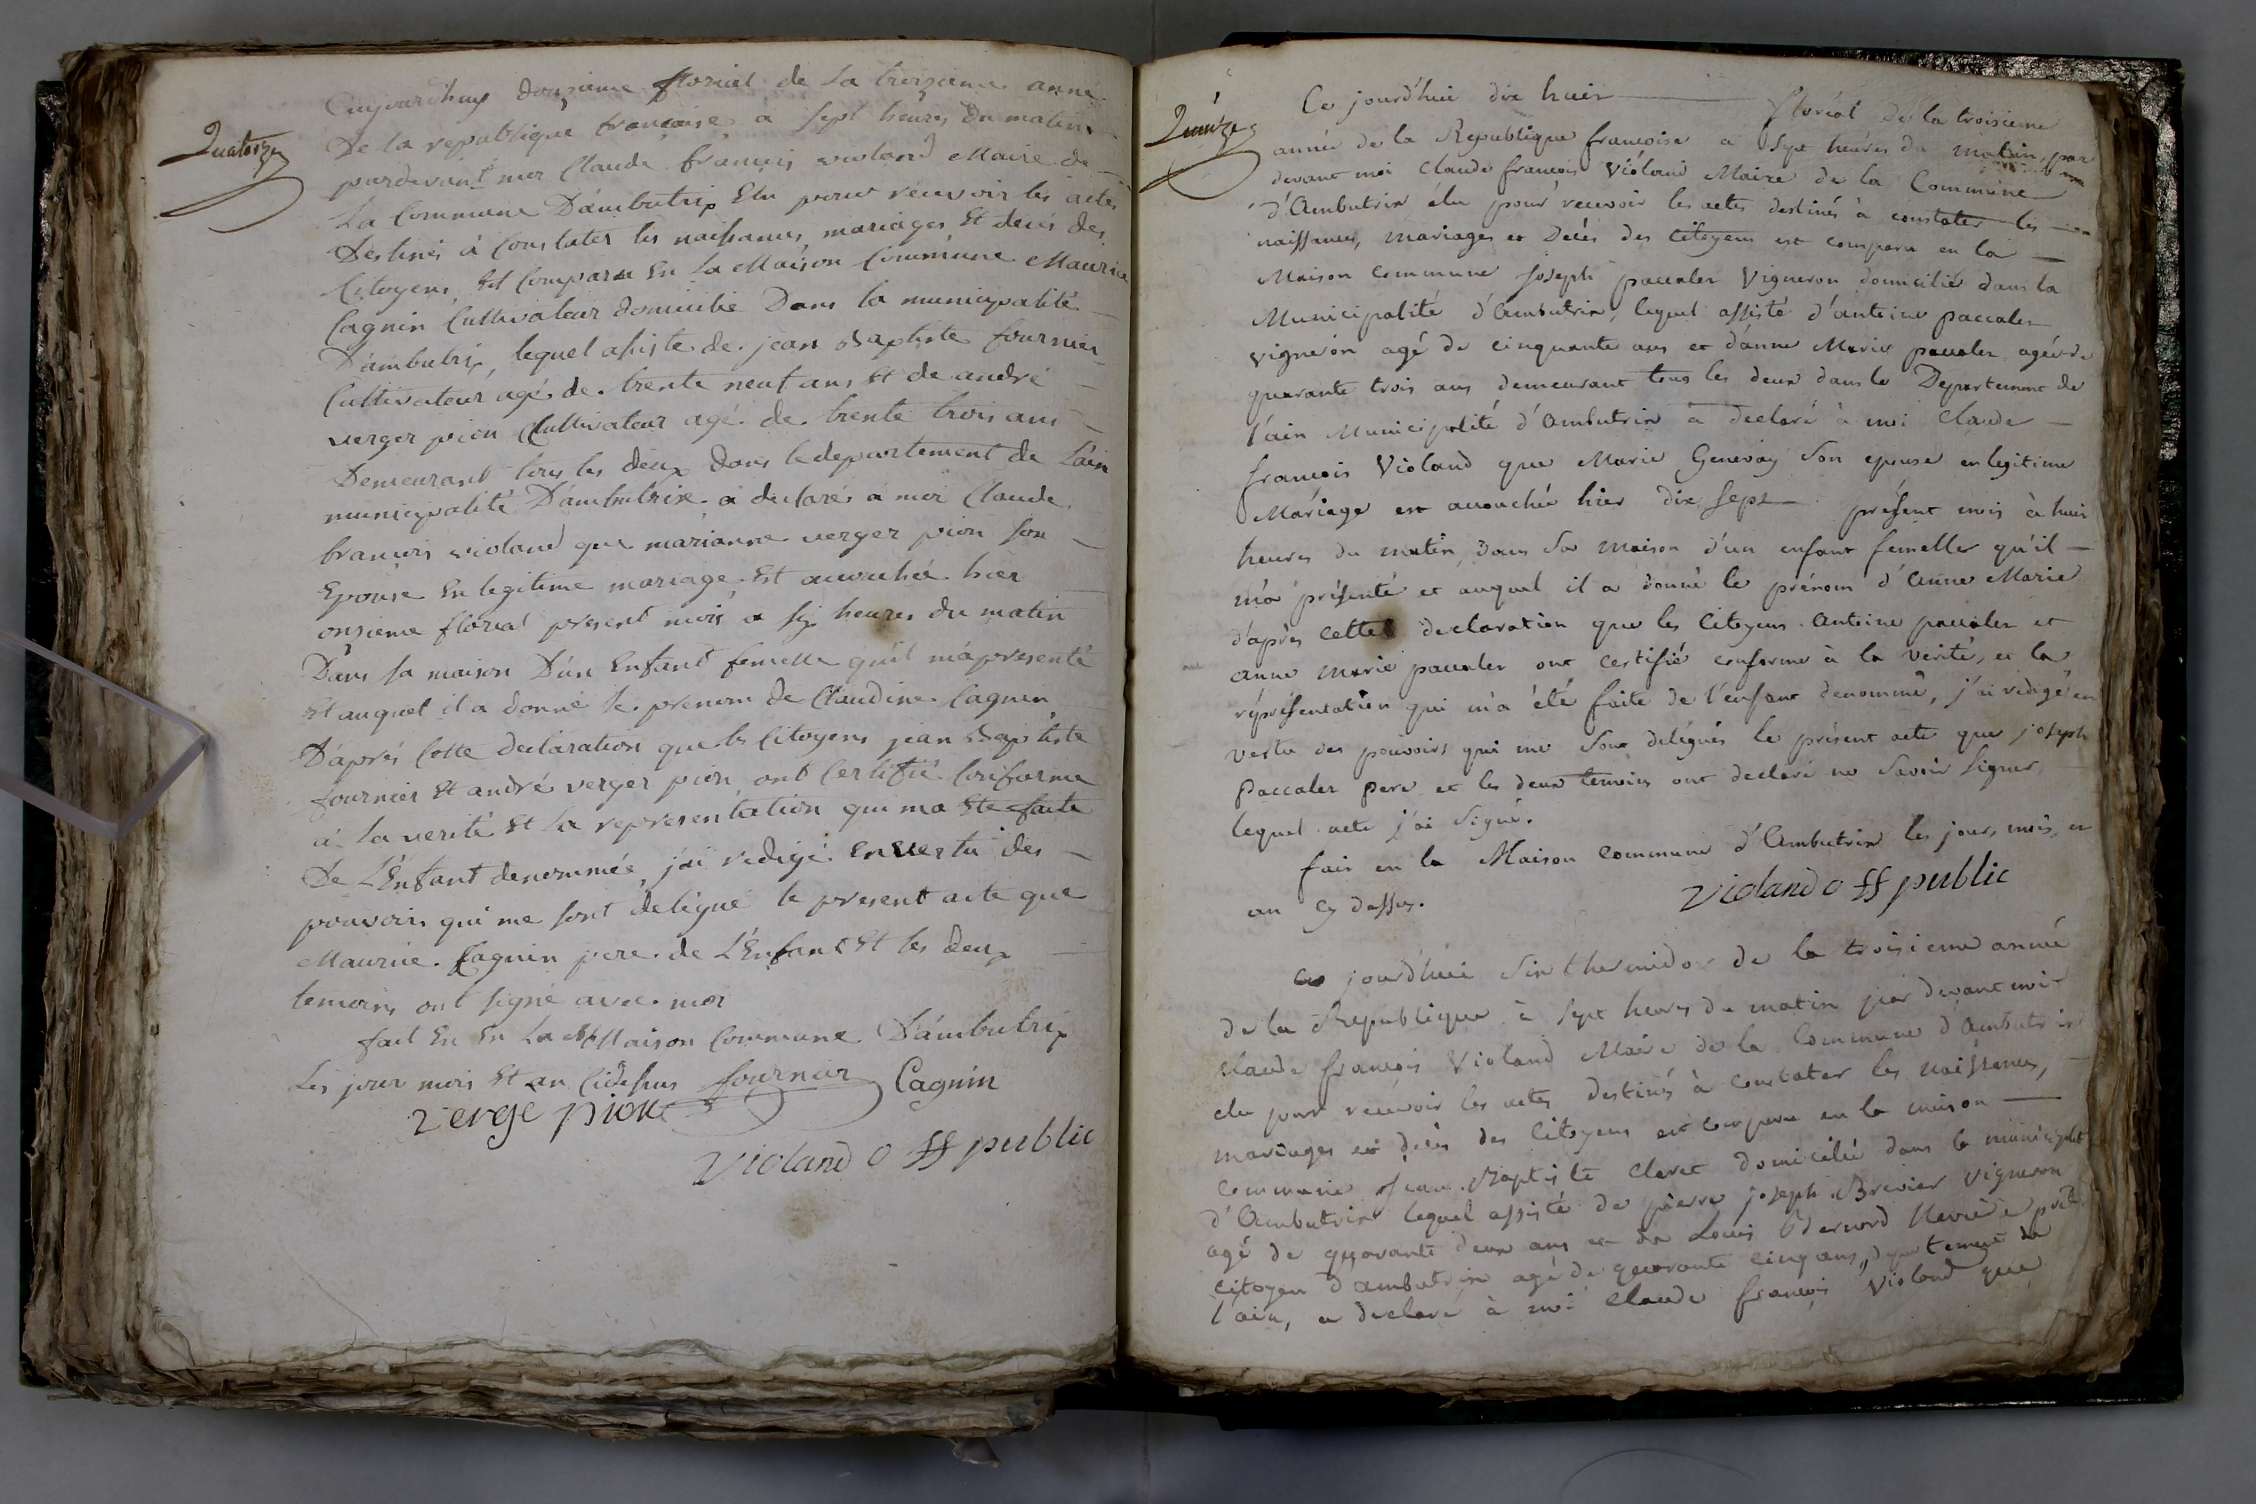 Quatorze
aujourdhuy douzieme floreal de la troizieme anné
De la republique francaise a sept heures du matin
pardevant moi Claude francois violand Maire de
La Commune D'ambutrix Elu pour récevoir les actes
Destinés à Constater les naissances, mariages Et decés des
Citoyens, Est Comparu En La Maison Commune Maurice
Cagnin Cultivateur domicilié Dans la municipalité
D'ambutrix, lequel assiste de jean Baptiste fournier
Cultivateur agé de trente neuf ans Et de andré
verger pion Cultivateur agé de trente trois ans
Demeurant tous les deux dans le departement de L'ain
municipalité D'ambutrix a declaré a moi Claude
francois violand que marianne verger pion son
Epouse En legitime mariage Est accouchée hier
onzieme floreal present mois a six heures du matin
Dans sa maison D'un Enfant femelle qu'il m'a presenté
Et auquel il a donné le prenom de Claudine Cagnin
D'aprés Cette declaration que les Citoyens jean Baptiste
fournier Et andré verger pion ont Certifié Conforme
a la verité Et la representation qui ma Ete faite
De L'Enfant denommée, j'ai redigé En vertu des
pouvoirs qui me sont delégué le present acte que
Maurice Cagnin pere de L'Enfant Et les deux
temoins ont signé avec moi
fait En En La Maison Commune D'ambutrix
Les jour mois Et an Cidessus fournier Cagnin
verge pion
Violand off public
Quinze
Ce jourd'hui dix huit floréal de la troisieme
année de la Republique françoise a Sept heures du matin, par
devant moi Claude françois Violand Maire de la Commune
d'Ambutrix élu pour recevoir les actes destinés à constater les
naissances, mariages et Décés des Citoyens est comparu en la
Maison commune Joseph paccalet Vigneron domicilié dans la
Municipalité d'Ambutrix, lequel assisté d'antoine paccalet
vigneron agé de cinquante ans et d'anne Marie paccalet agée de
quarante trois ans demeurant tous les deux dans le Departement de
l'ain Municipalité d'Ambutrix a declaré à moi Claude
françois Violand que Marie Genevay Son epouse en legitime
Mariage est accouchée hier dix sept présent mois à huit
heures du matin, dans Sa maison d'un enfant femelle qu'il
m'a présenté et auquel il a donné le prénom d'Anne Marie
d'après cette declaration que les Citoyens Antoine paccalet et
anne marie paccalet ont certifié conforme à la verité, et la
réprésentation qui m'a été faite de l'enfant denommé, j'ai redigé en
vertu des pouvoirs qui me Sont délégués le présent acte que joseph
Paccalet pere et les deux temoins ont declaré ne Savoir Signer
lequel acte j'ai signé.
fait en la Maison commune d'Ambutrix les jour, mois, et
an cy dessus.
Violand off public
Ce jourd'hui Six thermidor de la troisieme année
de la Republique à sept heures du matin par devant moi
Claude françois Violand Maire de la Commune d'Ambutrix
elu pour recevoir les actes destinés à constater les naissances,
mariages et décès des Citoyens est comparu en la maison
commune Jean Baptiste Claret domicilié dans la municipté
d'Ambutrix lequel assisté de pierre joseph Brevier vigneron
agé de quarante deux ans et de Louis Bernard
citoyen d'ambutrix agé de quarante cinq ans, departement de
l'ain, a declaré à moi Claude françois Violand que